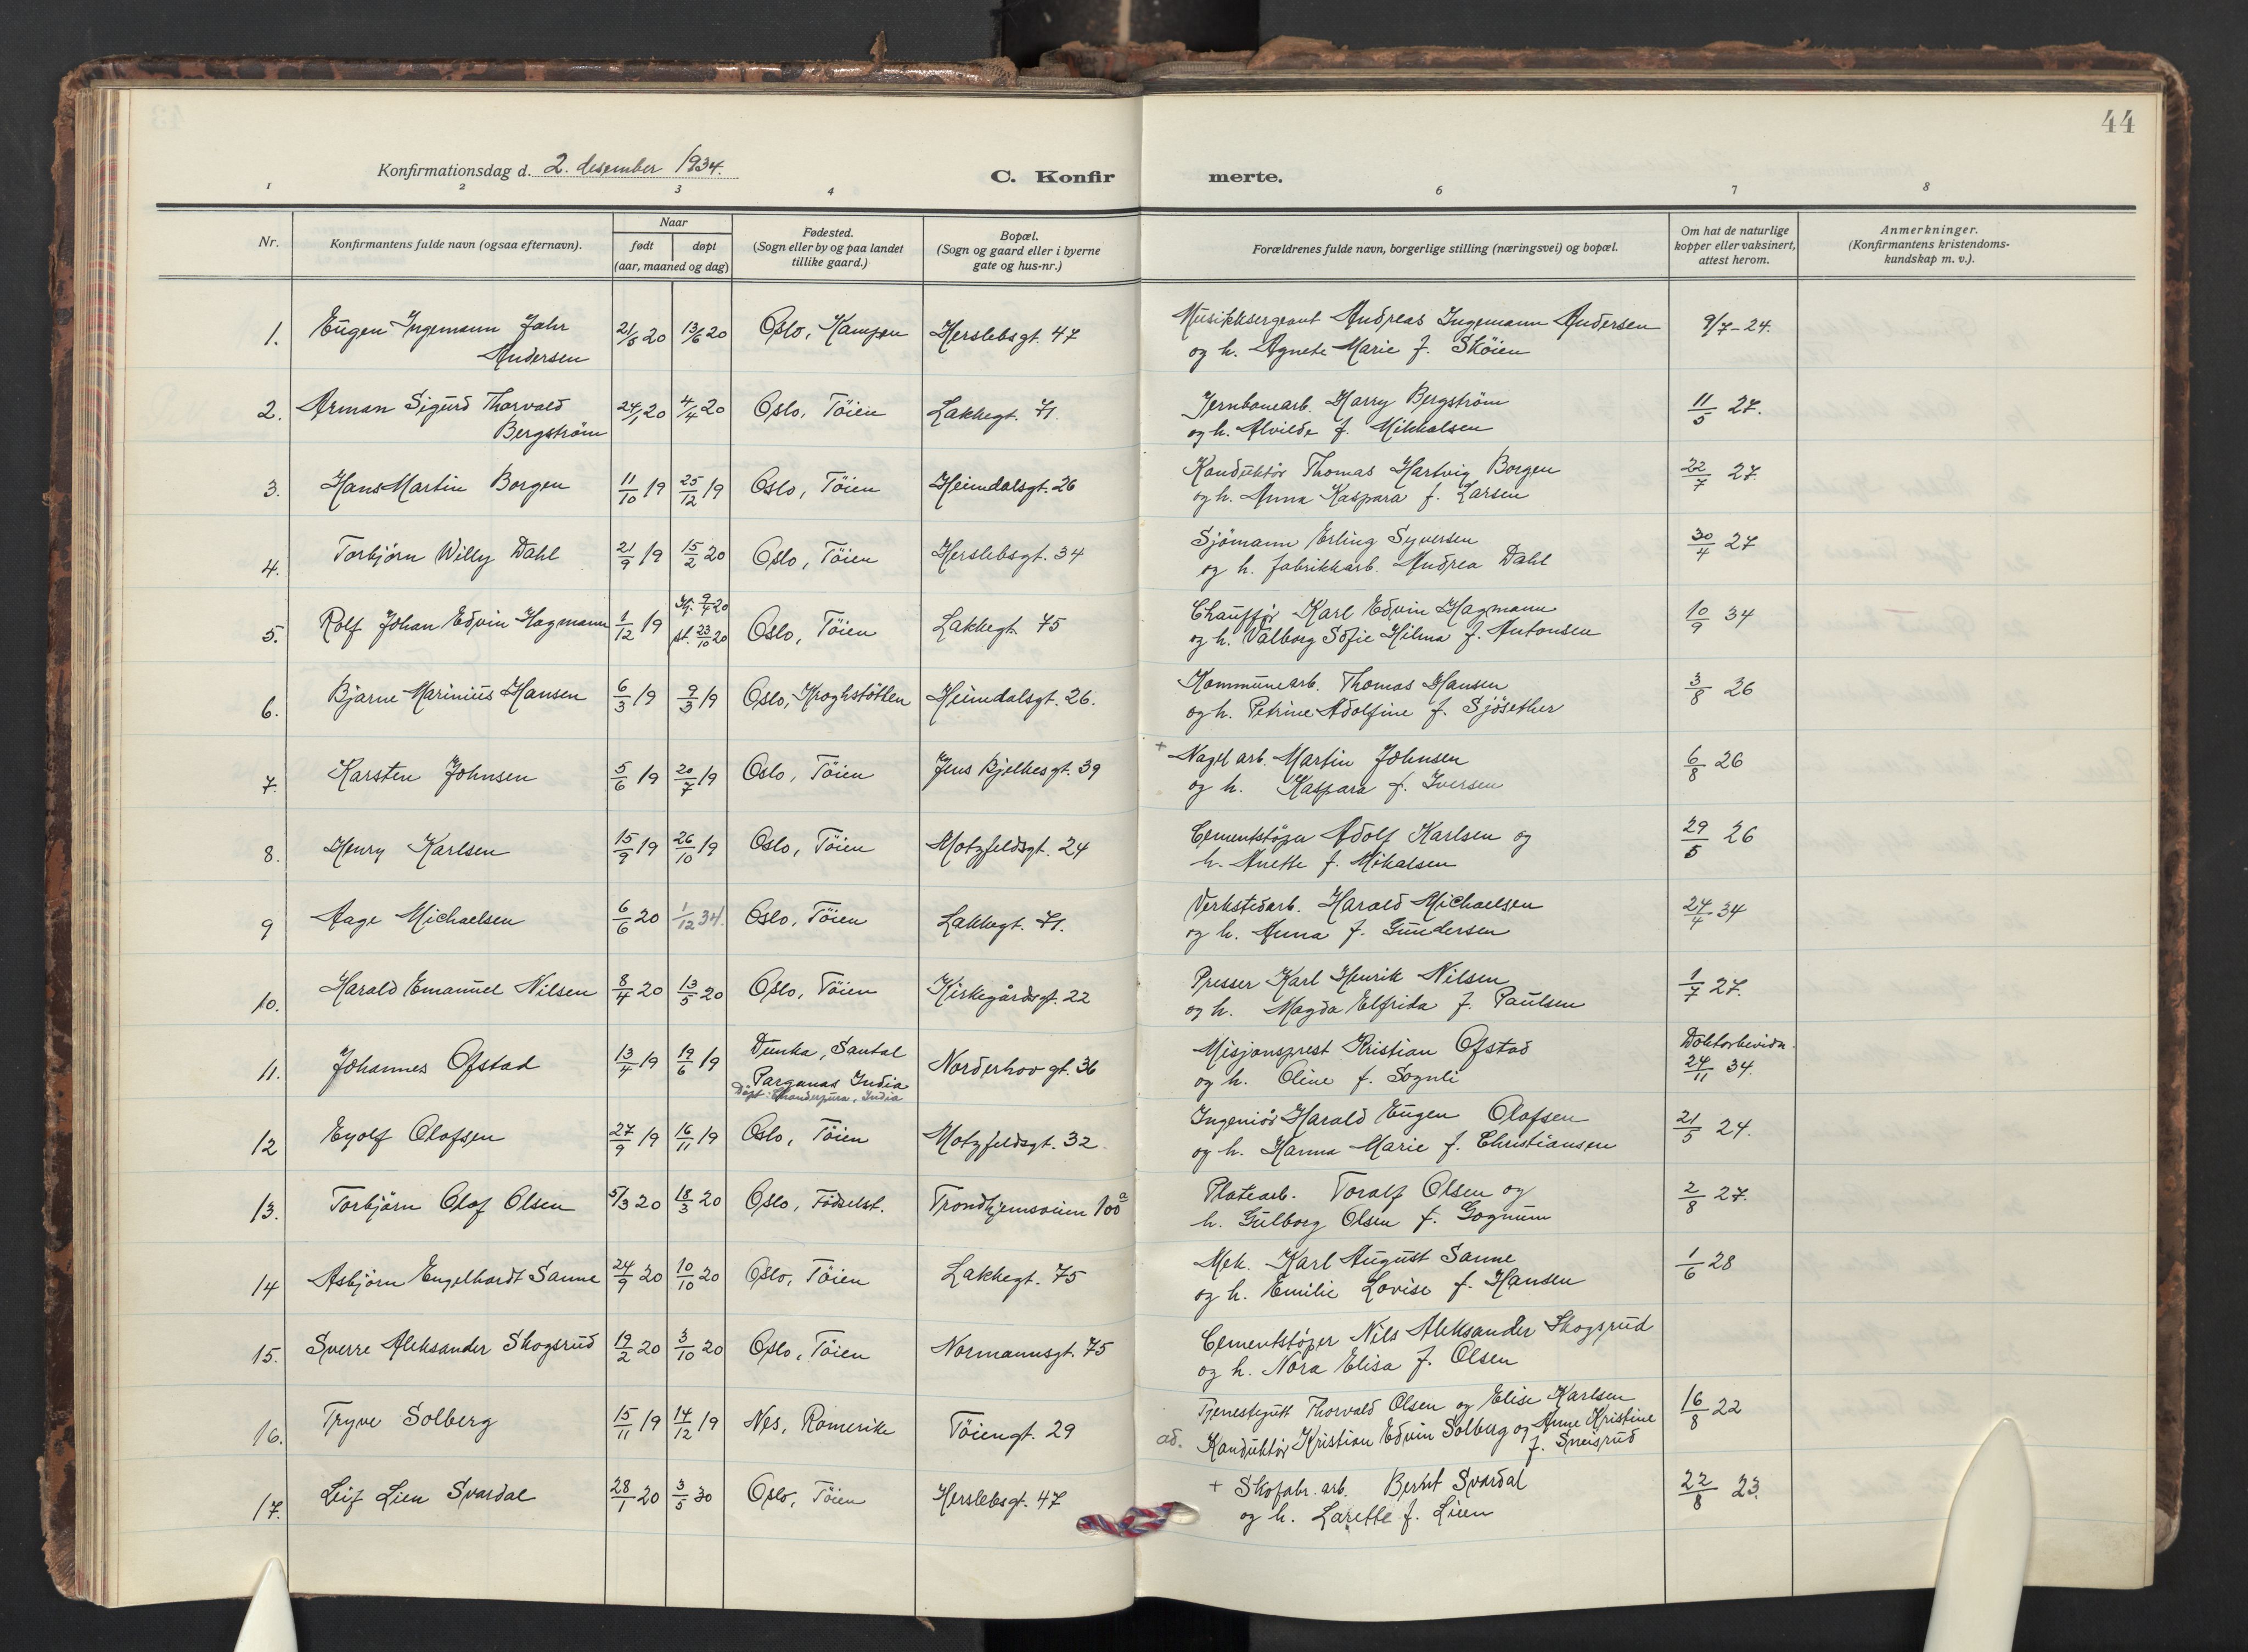 44
Konfirmationsdag d. 2. desember 1934.
C. Konfirmerte.
1 2 3 4 6 7 8
Nr.
Konfirmantens fulde navn (ogsaa efternavn).
Naar
født døpt
(aar, maaned og dag)
Fødested.
(Sogn eller by og paa landet
tillike gaard.)
Bopæl.
(Sogn og gaard eller i byerne
gate og hus-nr.)
Forældrenes fulde navn, borgerlige stilling (næringsvei) og bopæl.
Om hat de naturlige
kopper eller vaksinert,
attest herom.
Anmerkninger.
(Konfirmantens kristendoms-
kundskap m. v.).
1. Eugen Ingemann Jahr 21/5 20 13/6 20 Oslo, Kampen Herslebsgt. 47 Musikksergeant Andreas Ingemann Andersen 9/7-24.
Andersen og h. Agnete Marie f. Sköien
2. Arman Sigurd Thorvald 24/1 20 4/4 20 Oslo, Töien Lakkegt. 71. Jernbanearb. Harry Bergström 11/5 27.
Bergström og h. Alvilde f. Mikkalsen
3. Hans Martin Borgen 11/10 19 25/12 19 Oslo, Töien Heimdalsgt. 26 Konduktör Thomas Hartvig Borgen 22/7 27.
og h. Anna Kaspara f. Larsen
4. Torbjörn Willy Dahl 21/9 19 15/2 20 Oslo, Töien Herslebsgt. 34 Sjömann Erling Syversen 30/4 27
og h. fabrikkarb. Andrea Dahl
5. Rolf Johan Edvin Hagmann 1/12 19 Hj. 9/4 20 Oslo, Töien Lakkegt. 75 Chauffør Karl Edvin Hagmann 10/9 34
st. 23/10 20 og h. Valborg Sofie Hilma f. Antonsen
6. Bjarne Marinius Hansen 6/3 19 9/3 19 Oslo, Kroghstötten Heimdalsgt. 26. Kommunearb. Thomas Hansen 3/8 26
og h. Petrine Adolfine f. Sjösether
7. Karsten Johnsen 5/6 19 20/7 19 Oslo, Töien Jens Bjelkesgt. 39 + Nagel arb. Martin Johnsen 6/8 26
og h. Kaspara f. Iversen
8. Henry Karlsen 15/9 19 26/10 19 Oslo, Töien Motzfeldsgt. 24 Cementstöper Adolf Karlsen og 29/5 26
h. Anette f. Mikalsen
9 Aage Michaelsen 6/6 20 1/12 34. Oslo, Töien Lakkegt. 71. Verkstedarb. Harald Michaelsen 24/4 34
og h. Anna f. Gundersen
10. Harald Emanuel Nilsen 8/4 20 13/5 20 Oslo, Töien Kirkegårdsgt. 22 Presser Karl Henrik Nilsen 1/7 27.
og h. Magda Elfrida f. Paulsen
11. Johannes Ofstad 13/4 19 19/6 19 Dumka, Santal Norderhovgt. 36 Misjonsprest Kristian Ofstad Doktorbevidn.
Parganas India og h. Oline f. Sognli 24/11 34.
Döpt: India
12 Eyolf Olafsen 27/9 19 16/11 19 Oslo, Töien Motzfeldsgt. 32 Ingeniör Harald Eugen Olafsen 21/5 24.
og h. Hanna Marie f. Christiansen
13. Torbjörn Olaf Olsen 5/3 20 18/3 20 Oslo, Födselst. Trondhjemsveien 100 a Platearb. Toralf Olsen og 2/8 27.
h. Gulborg Olsen f. Gognum
14 Asbjörn Engelhardt Sanne 24/9 20 10/10 20 Oslo, Töien Lakkegt. 75 Mek. Karl August Sanne 1/6 28
og h. Emilie Lovise f. Hansen
15. Sverre Aleksander Skogsrud 19/2 20 3/10 20 Oslo, Töien Normannsgt. 75 Cementstöper Nils Aleksander Skogsrud
og h. Nora Elisa f. Olsen
16. Tryve Solberg 15/11 19 14/12 19 Nes, Romerike Töiengt. 29 Tjenestegutt Thorvald Olsen og Elise Karlsen 16/8 22
ad. Konduktör Kristian Edvin Solberg og Anne Kristine
f. Sneisrud
17. Leif Lien Svardal 28/1 20 3/5 30 Oslo, Töien Herslebsgt. 47 + Skofabr. arb. Bernt Svardal 22/8 23.
og h. Larette f. Lien